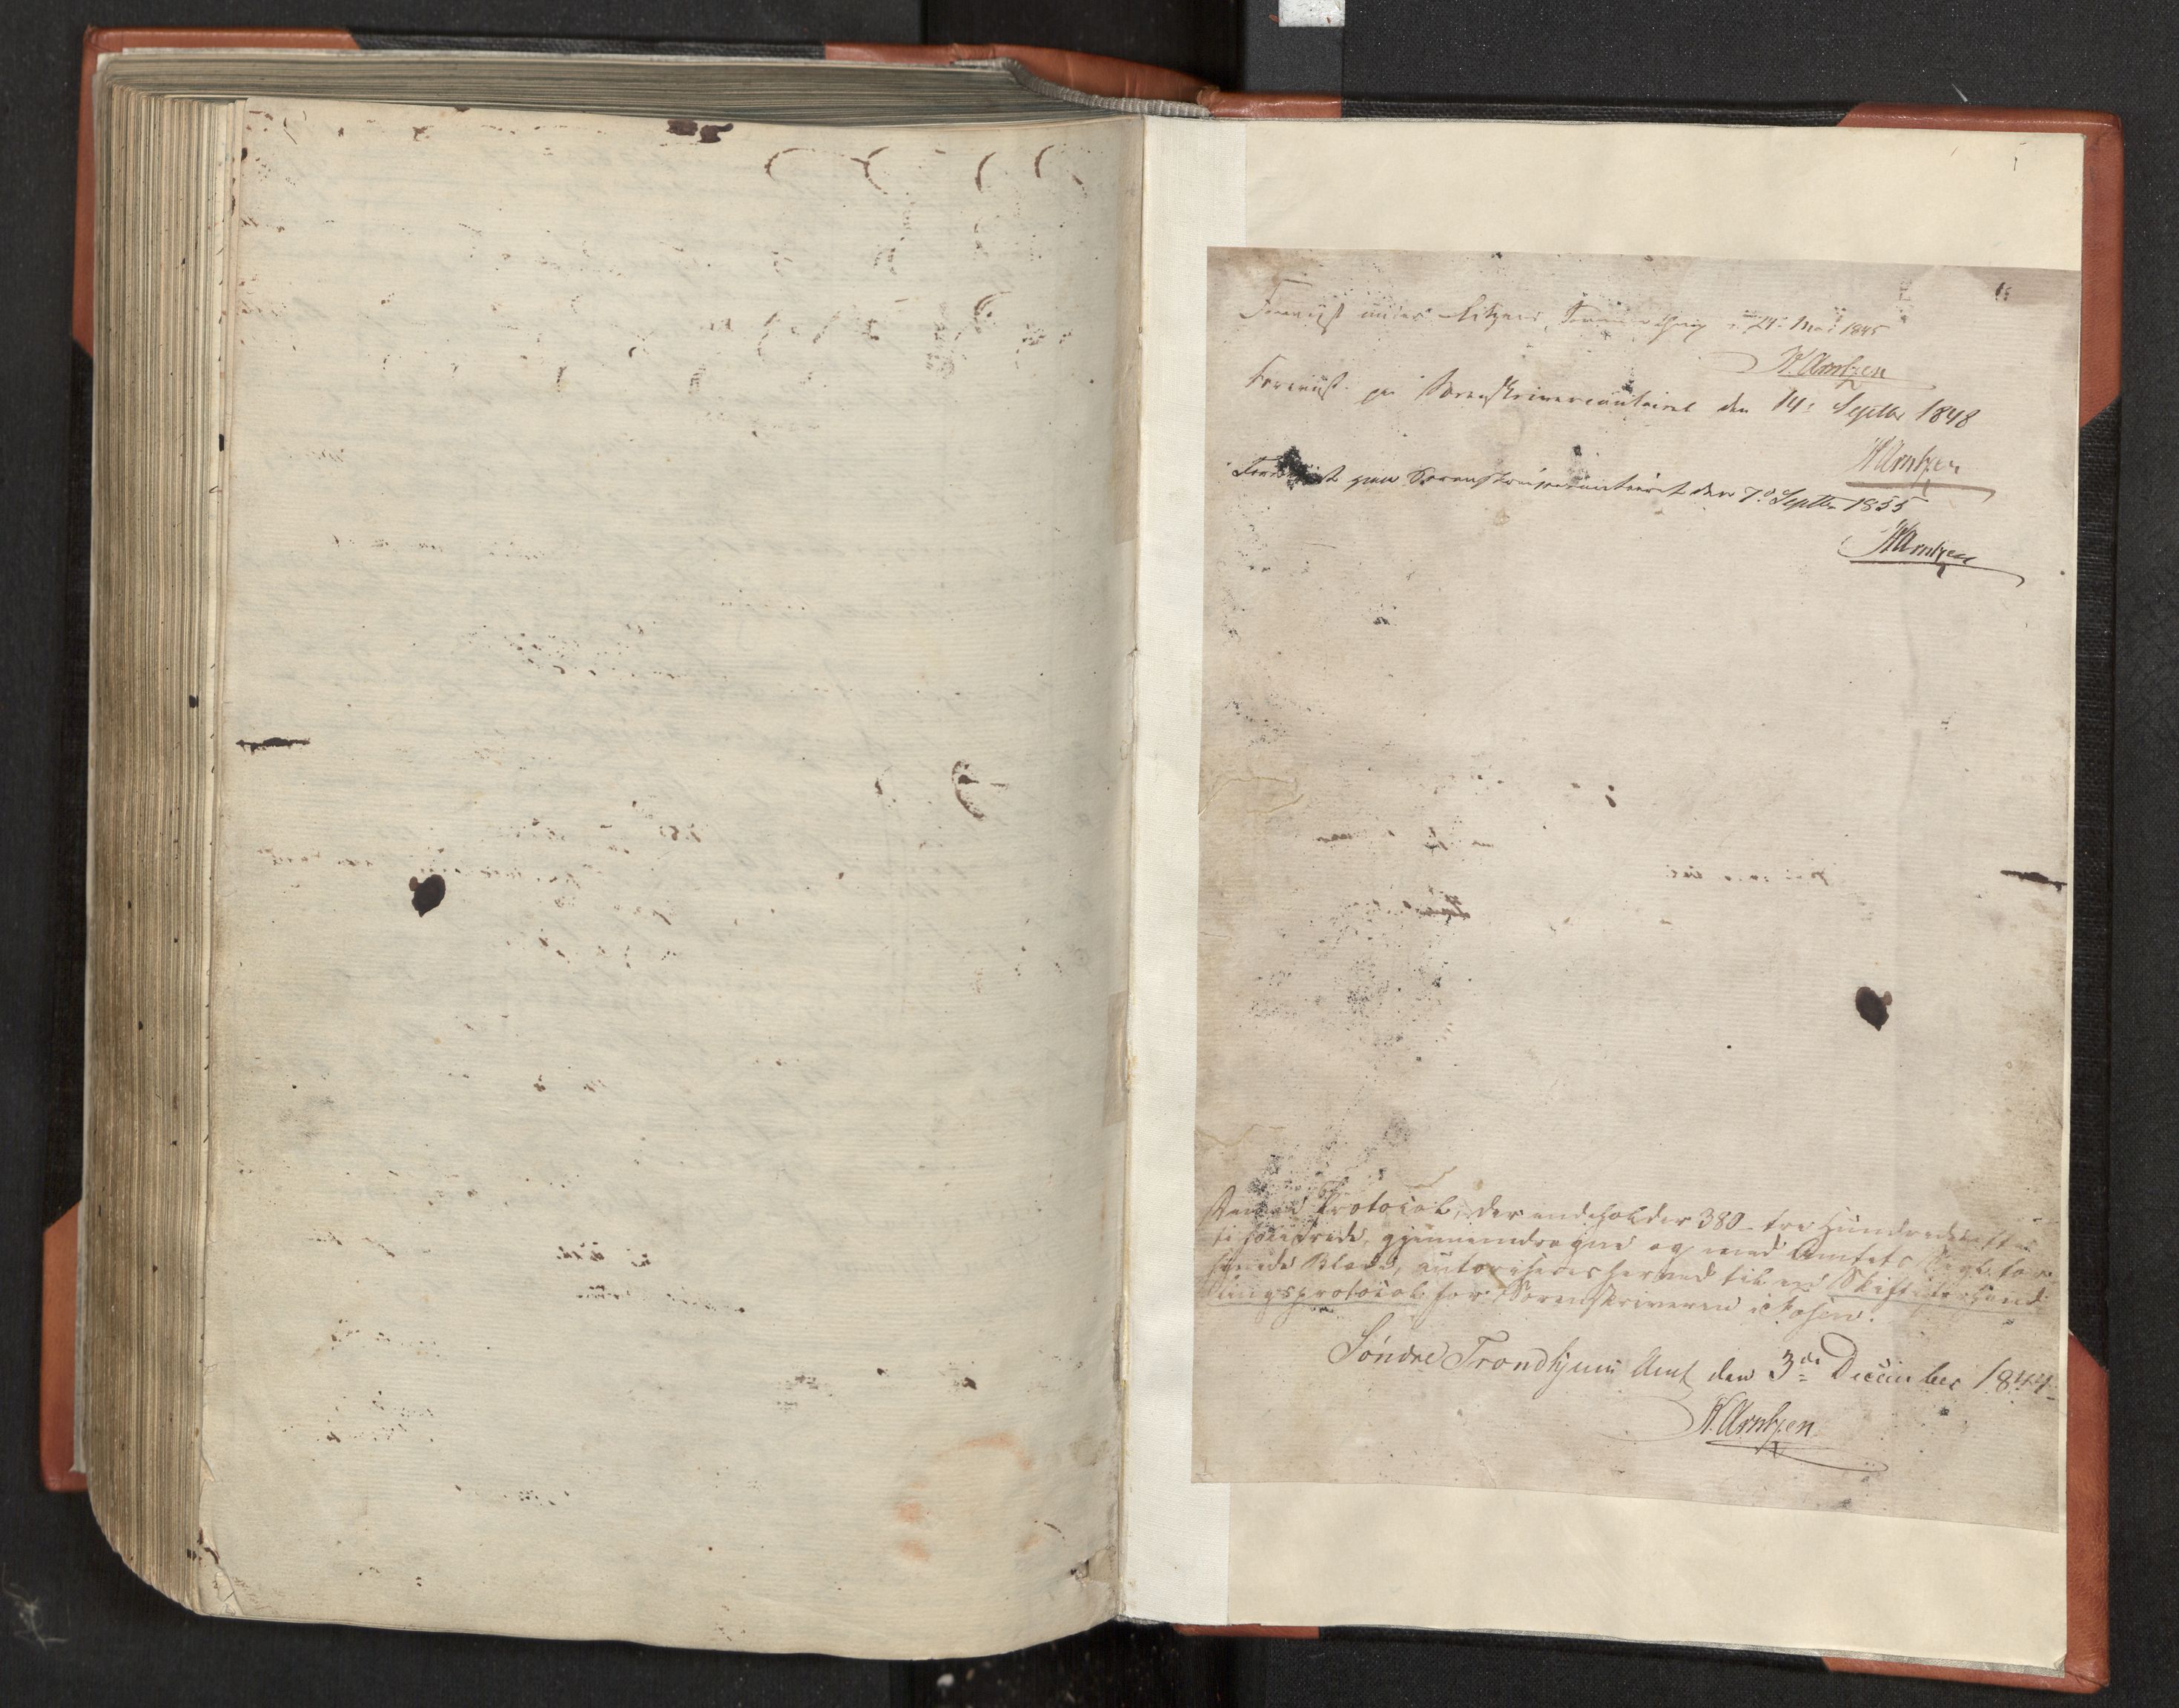 Foreviist under Sitzned, den 24de Mai 1845
K. Arntzen
Foreviist paa Sorenskrivercontoiret den 14de Septbr 1848
K Arntzen
Foreviist paa Sorenskrivercontoiret den 7de Septbr 1855
K Arntzen
Protocol, der indeholder 380 tre Hundrede
gjennemdragne og med Amtets Segl for
synede Blade, autoriseres herved til en Skifteforhand
lingsprotocol for Sorenskriveren i Fosen.
Söndre Trondhjems Amt den 3die December 1844
K. Arntzen